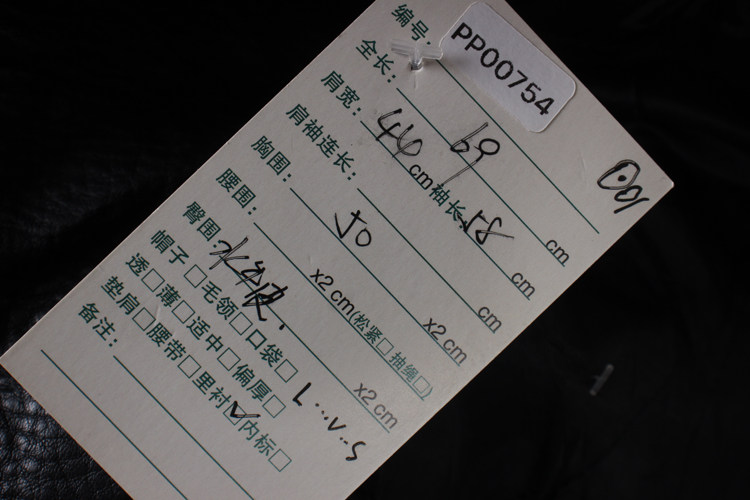 编号: PP00754
全长: 69 cm
肩宽: 44 cm 袖长: 58 cm
肩袖连长: cm
胸围: 50 x2 cm
腰围: x2 cm (松紧□ 抽绳□)
臀围: x2 cm
帽子□ 毛领□ 口袋□
透□ 薄□ 适中□ 偏厚□
垫肩□ 腰带□ 里衬☑ 内标□
备注:
L...V..S